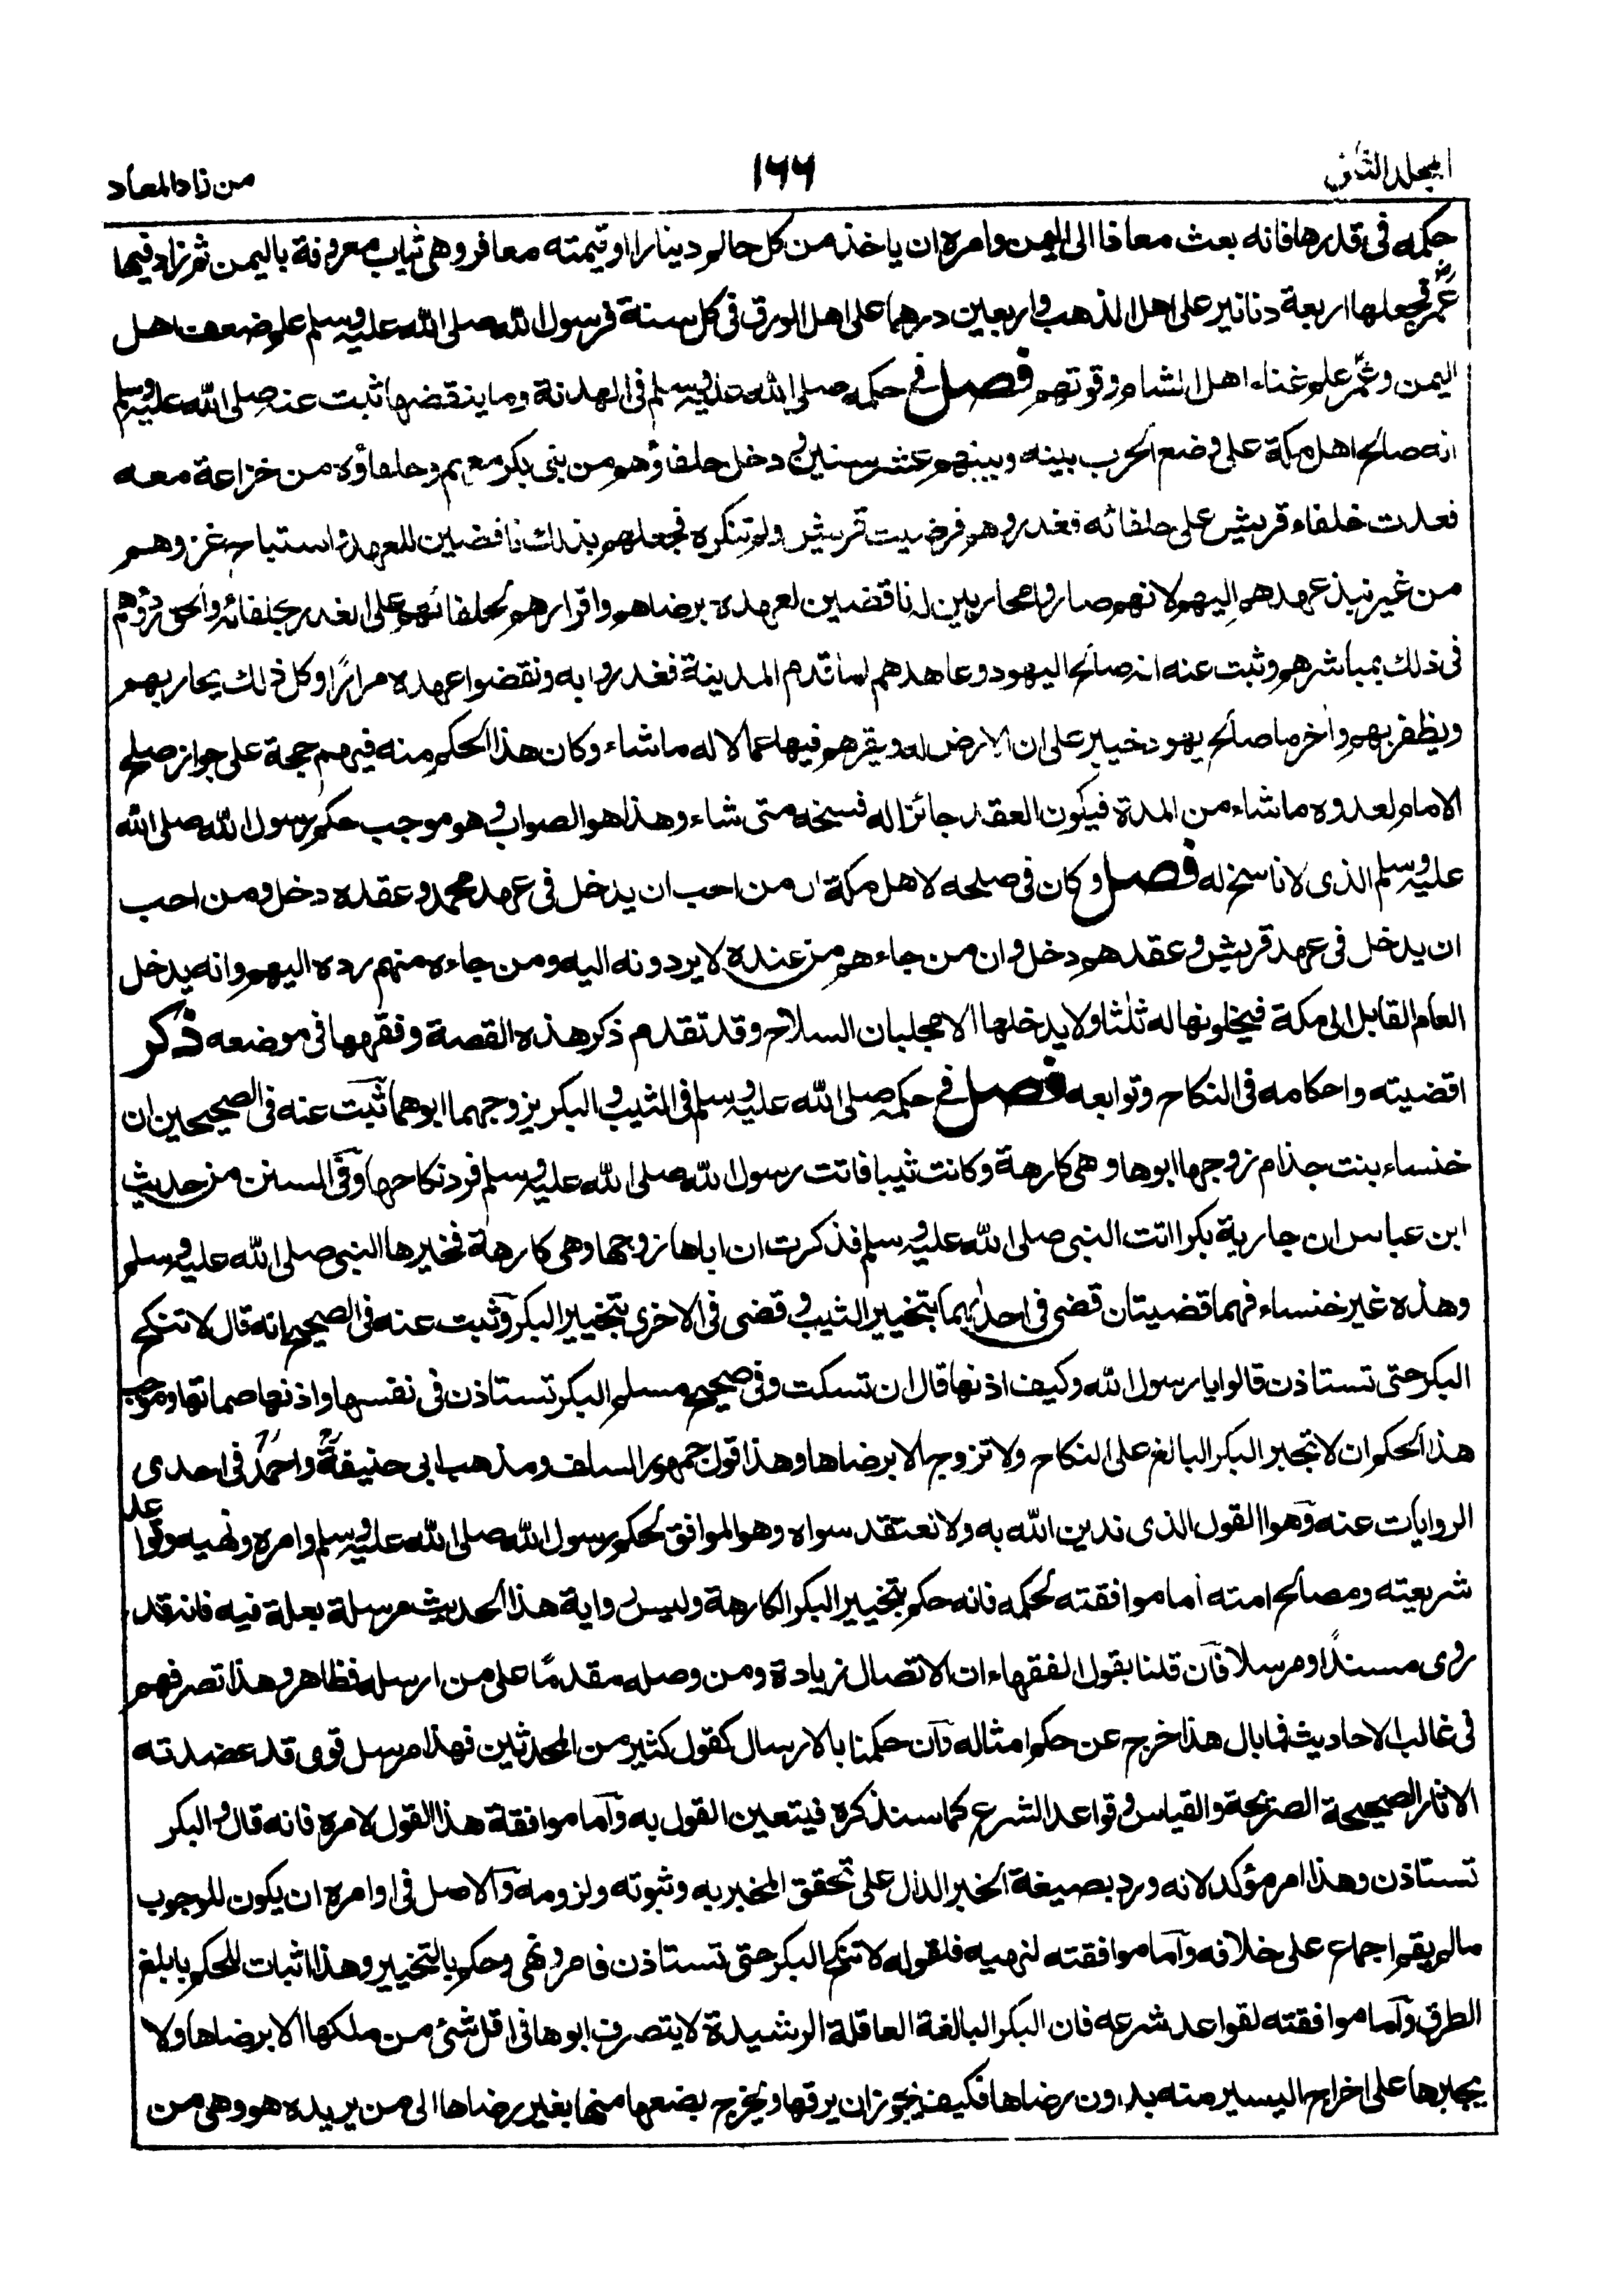 المجلد الثانى
١٦٦
من زاد المعاد
حكمه فى قدرها فانه بعث معاذا الى اليمن وامره ان ياخذ من كل حالم دينارا او قيمته معافر وهى ثياب معروفة باليمن ثم زاد فيها
عمر رض فجعلها اربعة دنانير على اهل الذهب واربعين درهما على اهل الورق فى كل سنة فرسول الله صلى الله عليه وسلم علم ضعف اهل
اليمن وعمر علم غناء اهل الشام وقوتهم فصل فى حكمه صلى الله عليه وسلم فى الهدنة وما ينقضها ثبت عنه صلى الله عليه وسلم
انه صالح اهل مكة على وضع الحرب بينه وبينهم عشر سنين ودخل حلفاؤهم من بنى بكر معهم وحلفاؤه من خزاعة معه
فعدت خلفاء قريش على حلفائه فغدروهم فرضيت قريش ولم تنكره فجعلهم بذلك ناقضين للعهد واستباح غزوهم
من غير نبذ عهدهم اليهم لانهم صاروا محاربين له ناقضين لعهده برضاهم واقرارهم لحلفائهم على الغدر بحلفائه والحق ردؤهم
فى ذلك بمباشرهم وثبت عنه انه صالح اليهود وعاهدهم لما قدم المدينة فغدروا به ونقضوا عهده مرارًا وكل ذلك يحاربهم
ويظفر بهم واٰخر ما صالح يهود خيبر على ان الارض له ويقرهم فيها عمالا له ما شاء وكان هذا الحكم منه فيهم حجة على جواز صلح
الامام لعدوه ما شاء من المدة فيكون العقد جائزا له فسخه متى شاء وهذا هو الصواب وهو موجب حكم رسول الله صلى الله
عليه وسلم الذى لا ناسخ له فصل وكان فى صلحه لاهل مكة ان من احب ان يدخل فى عهد محمد وعقده دخل ومن احب
ان يدخل فى عهد قريش وعقدهم دخل وان من جاءهم من عنده لا يردونه اليه ومن جاءه منهم رده اليهم وانه يدخل
العام القابل الى مكة فيخلونها له ثلٰثا ولا يدخلها الا بجلبان السلاح وقد تقدم ذكر هذه القصة وفقهها فى موضعه ذكر
اقضيته واحكامه فى النكاح وتوابعه فصل فى حكمه صلى الله عليه وسلم فى الثيب والبكر يزوجهما ابوهما ثبت عنه فى الصحيحين ان
خنساء بنت جذام زوجها ابوها وهى كارهة وكانت ثيبا فاتت رسول الله صلى الله عليه وسلم فرد نكاحها وفى السنن من حديث
ابن عباس ان جارية بكرا اتت النبى صلى الله عليه وسلم فذكرت ان اباها زوجها وهى كارهة فخيرها النبى صلى الله عليه وسلم
وهذه غير خنساء فهما قضيتان قضى فى احدٰيهما بتخيير الثيب وقضى فى الاخرى بتخيير البكر وثبت عنه فى الصحيح انه قال لا تنكح
البكر حتى تستاذن قالوا يا رسول الله وكيف اذنها قال ان تسكت وفى صحيح مسلم البكر تستاذن فى نفسها واذنها صماتها وموجب
هذا الحكم ان لا تجبر البكر البالغ على النكاح ولا تزوج الا برضاها وهذا قول جمهور السلف ومذهب ابى حنيفة واحمد فى احدى
الروايات عنه وهو القول الذى ندين الله به ولا نعتقد سواه وهو الموافق لحكم رسول الله صلى الله عليه وسلم وامره ونهيه وقواعد
شريعته ومصالح امته اما موافقته لحكمه فانه حكم بتخيير البكر الكارهة وليس رواية هذا الحديث مرسلة بعلة فيه فانه قد
روى مسندًا ومرسلا فان قلنا بقول الفقهاء ان الاتصال زيادة ومن وصله مقدمًا على من ارسله فظاهر وهذا تصرفهم
فى غالب الاحاديث فما بال هذا خرج عن حكم امثاله وان حكمنا بالارسال كقول كثير من المحدثين فهذا مرسل قوى قد عضدته
الاثار الصحيحة الصريحة والقياس وقواعد الشرع كما سنذكره فيتعين القول به واما موافقة هذا القول لامره فانه قال والبكر
تستاذن وهذا امر مؤكد لانه ورد بصيغة الخبر الدال على تحقق المخبر به وثبوته ولزومه والاصل فى اوامره ان يكون للوجوب
مالم يقم اجماع على خلافه واما موافقته لنهيه فلقوله لا تنكح البكر حتى تستاذن فامر ونهى وحكم بالتخيير وهذا اثبات للحكم بابلغ
الطرق واما موافقته لقواعد شرعه فان البكر البالغة العاقلة الرشيدة لا يتصرف ابوها فى اقل شئ من ملكها الا برضاها ولا
يجبرها على اخراج اليسير منه بدون رضاها فكيف يجوز ان يرقها ويخرج بضعها منها بغير رضاها الى من يريده هو وهى من